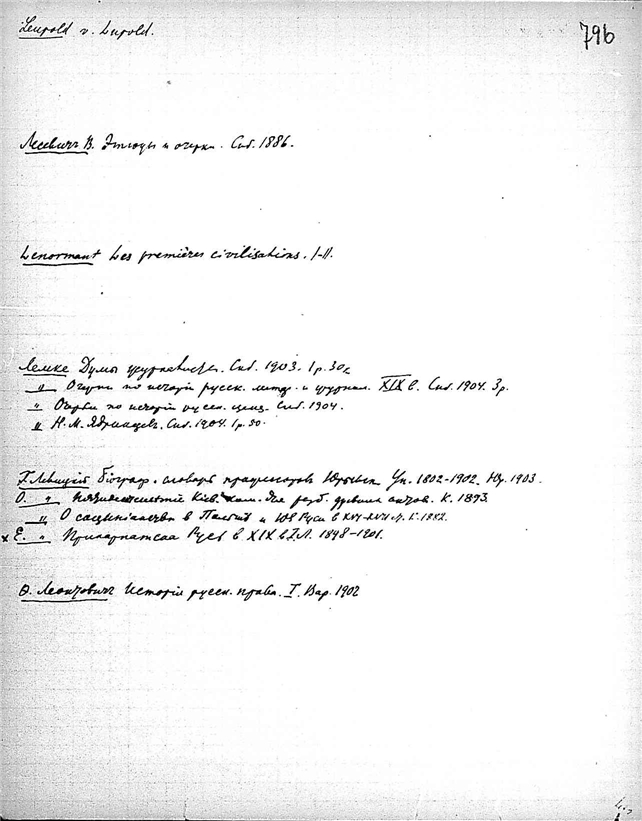 Leupold v. Lupold.
796
Лесевичъ В. Этюды и очерки. Спб. 1886.
Lenormant Les premières civilisations. I-II.
Лемке Думы журналиста. Спб. 1903. 1 р. 30 к
" Очерки по исторіи русск. литер. и журнал. XIX в. Спб. 1904. 3 р.
" Очерки по исторіи русск. ценз. Спб. 1904.
" Н. М. Ядринцевъ. Спб. 1904. 1 р. 50.
Г. Левицкій біограф. словарь профессоровъ Юрьевск Ун. 1802-1902. Юр. 1903.
О. " Кіев. ком. для разб. древнихъ актов. К. 1893.
" О в и Юз Руси в XVI-XVII ст. К. 1882.
x Е. " Прикарпатская Русь в XIX в. 1848-1901.
Ө. Леонтовичъ Исторія русск. права. I. Вар. 1902